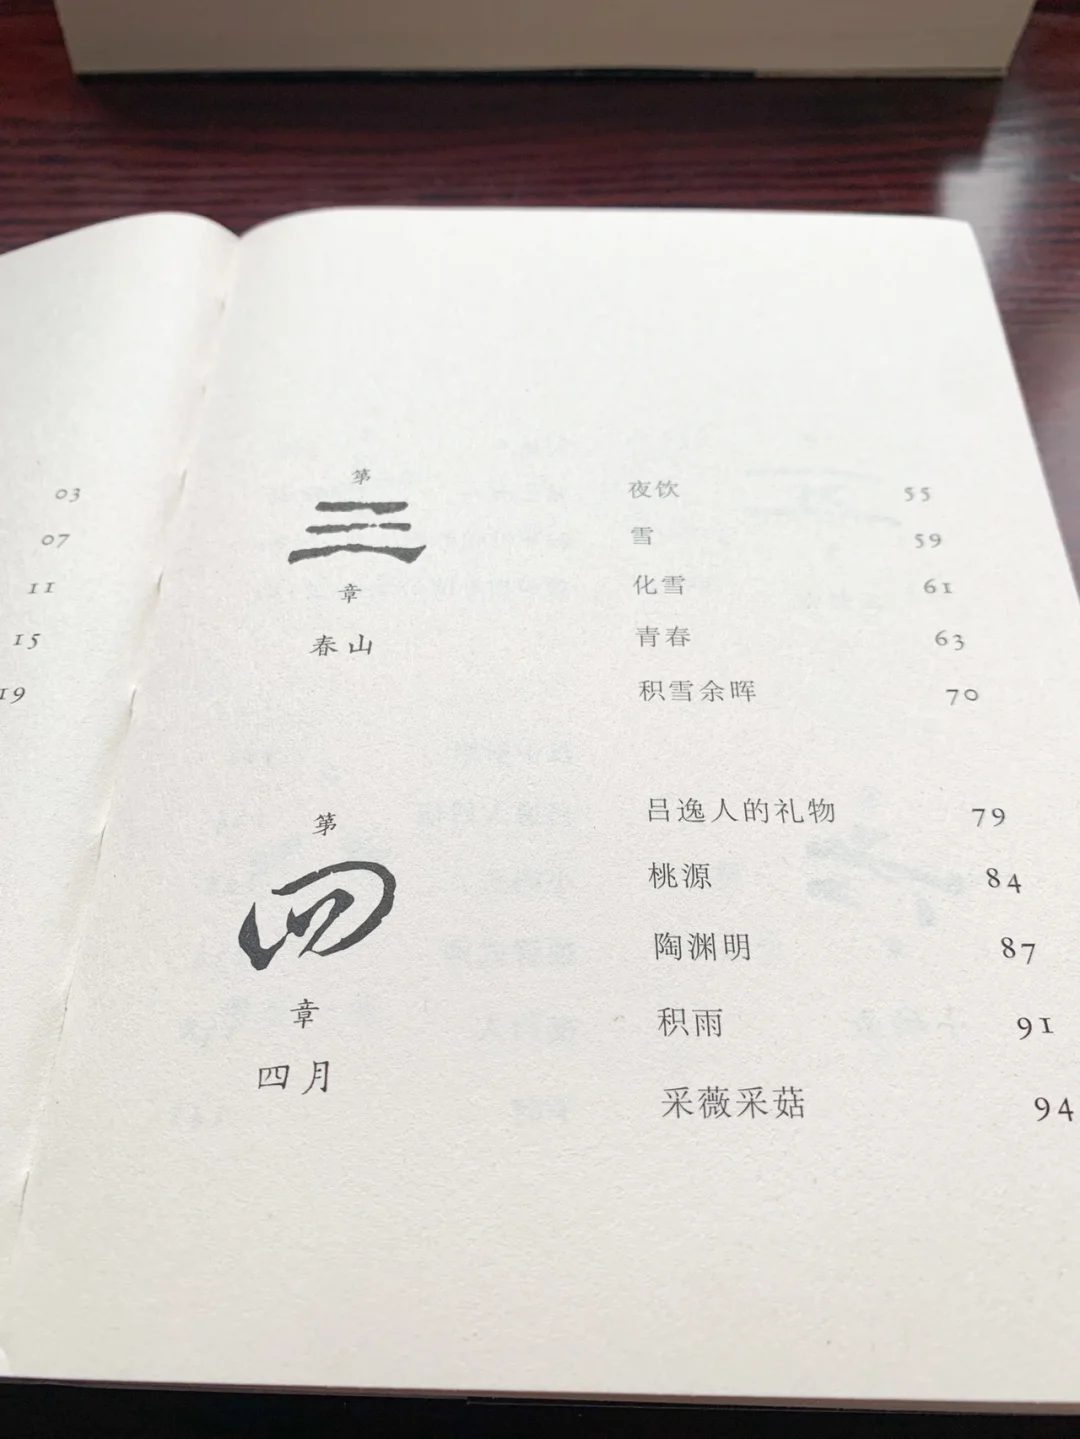 03
07
11
15
19
第
三
章
春山
夜饮 55
雪 59
化雪 61
青春 63
积雪余晖 70
第
四
章
四月
吕逸人的礼物 79
桃源 84
陶渊明 87
积雨 91
采薇采菇 94